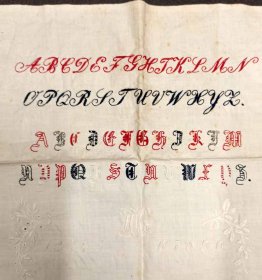 ABCDEFGHIJKLMN
OPQRSTUVWXYZ.
ABCDEFGHIJKLM
NOPQRSTUVWEYS